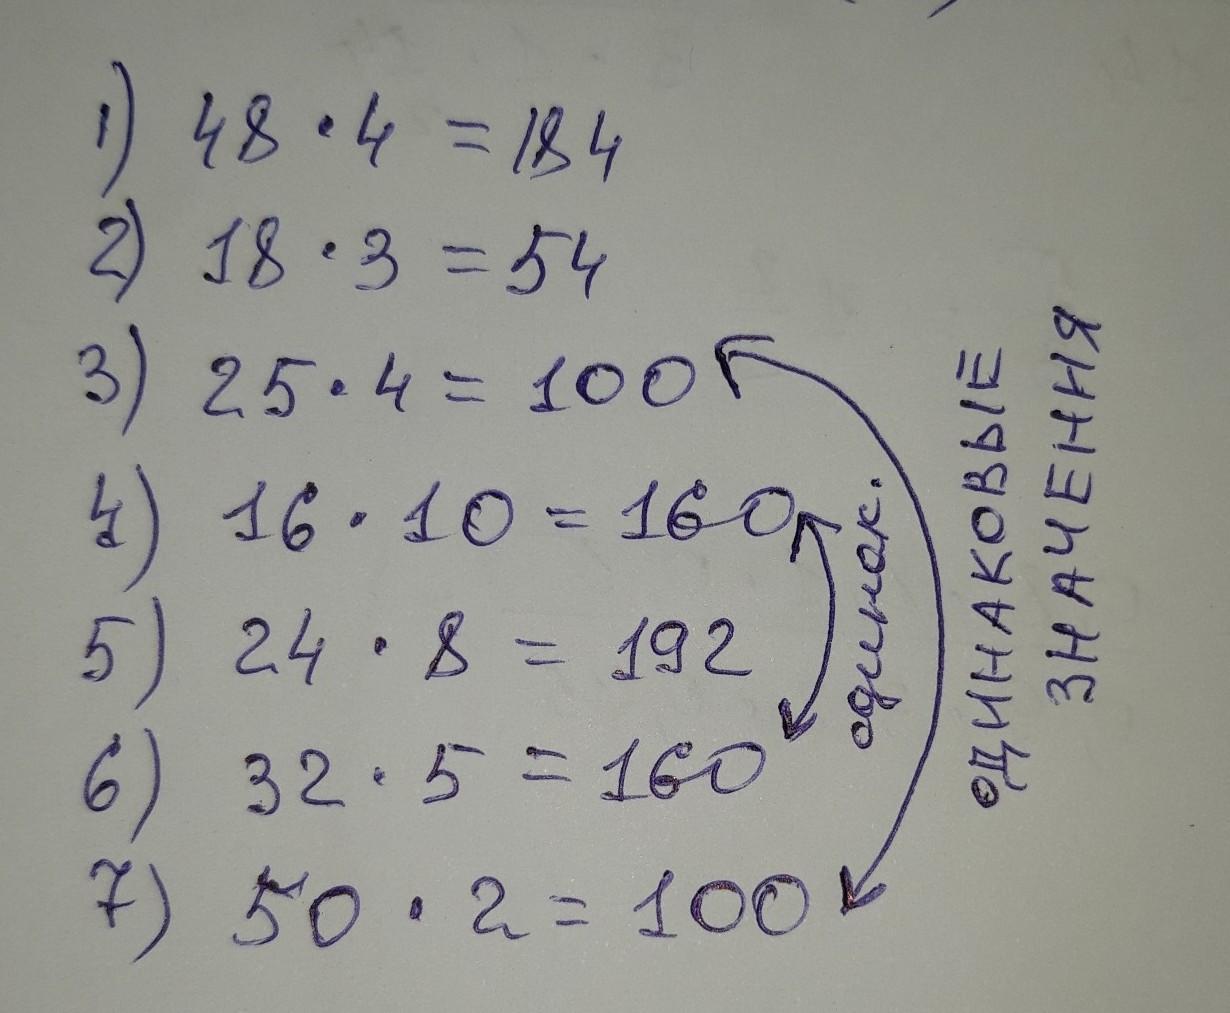 1) 48 · 4 = 184
2) 18 · 3 = 54
3) 25 · 4 = 100
4) 16 · 10 = 160
5) 24 · 8 = 192
6) 32 · 5 = 160
7) 50 · 2 = 100
одинак.
ОДИНАКОВЫЕ
ЗНАЧЕННЯ